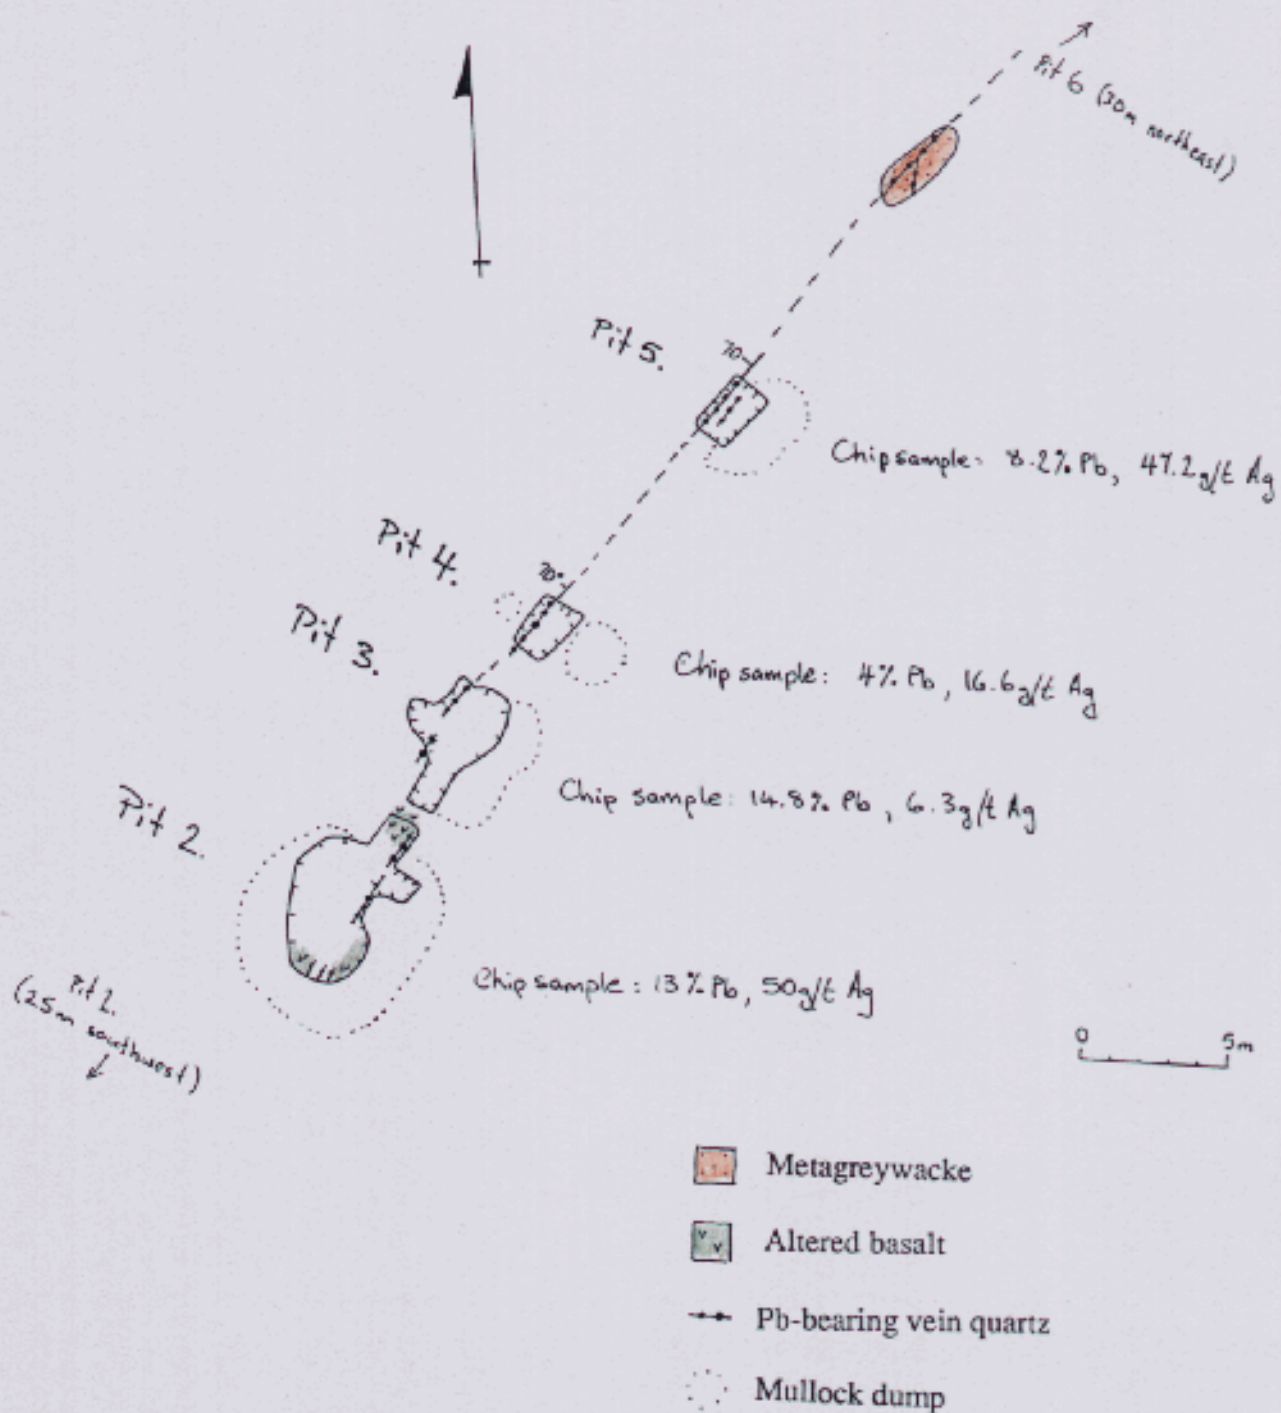 Pit 6 (30m northeast)
Pit 5.
70
Chip sample: 8.2% Pb, 47.2g/t Ag
Pit 4.
70°
Pit 3.
Chip sample: 4% Pb, 16.6g/t Ag
Chip sample: 14.8% Pb, 6.3g/t Ag
Pit 2.
Chip sample: 13% Pb, 50g/t Ag
Pit 1.
(25m southwest)
0 5m
Metagreywacke
Altered basalt
Pb-bearing vein quartz
Mullock dump